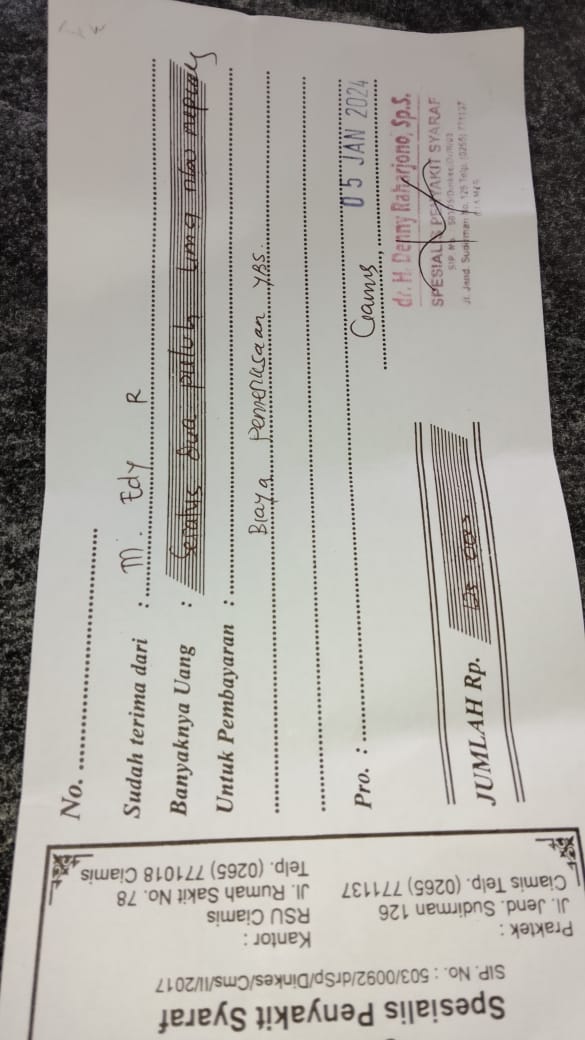 Spesialis Penyakit Syaraf
SIP. No. : 503/0092/drSp/Dinkes/Cms/II/2017
Kantor :
RSU Ciamis
Jl. Rumah Sakit No. 78
Telp. (0265) 771018 Ciamis
Praktek :
Jl. Jend. Sudirman 126
Ciamis Telp. (0265) 771137
No.
Sudah terima dari : M. Edy R
Banyaknya Uang : Seratus dua puluh lima ribu rupiah
Untuk Pembayaran :
Biaya Pemeriksaan YBS.
Pro. :
Ciamis, 05 JAN 2024
JUMLAH Rp. 125.000
dr. H. Denny Raharjono, Sp.S.
SPESIALIS PENYAKIT SYARAF
Jl. Jend. Sudirman No. 126 Telp. (0265) 771137